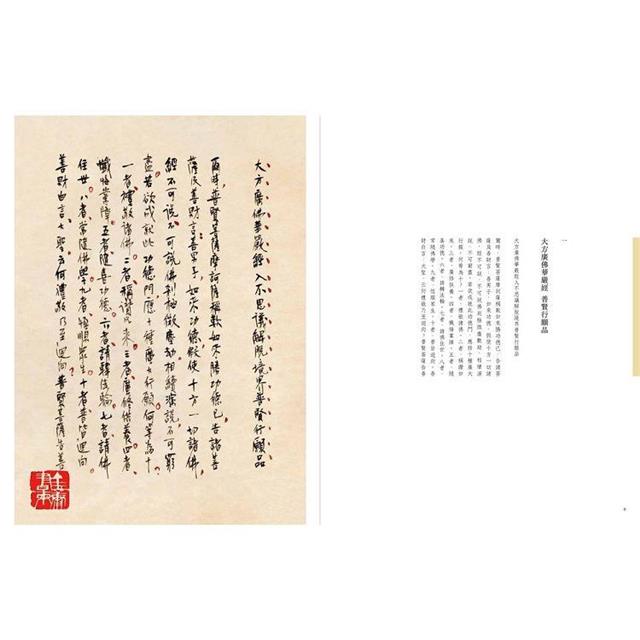 大方廣佛華嚴經入不思議解脫境界普賢行願品
爾時普賢菩薩摩訶薩稱歎如來勝功德已告諸菩
薩及善財言善男子如來功德假使十方一切諸佛
經不可說不可說佛剎極微塵數劫相續演說不可窮
盡若欲成就此功德門應修十種廣大行願何等為十
一者禮敬諸佛二者稱讚如來三者廣修供養四者
懺悔業障五者隨喜功德六者請轉法輪七者請佛
住世八者常隨佛學九者恒順眾生十者普皆迴向
善財白言大聖云何禮敬乃至迴向普賢菩薩告善
一
大方廣佛華嚴經 普賢行願品
大方廣佛華嚴經入不思議解脫境界普賢行願品
爾時，普賢菩薩摩訶薩稱歎如來勝功德已，告諸菩
薩及善財言：善男子，如來功德，假使十方一切諸
佛，經不可說、不可說佛剎極微塵數劫，相續演
說，不可窮盡。若欲成就此功德門，應修十種廣大
行願。何等為十？一者、禮敬諸佛。二者、稱讚如
來。三者、廣修供養。四者、懺悔業障。五者、隨
喜功德。六者、請轉法輪。七者、請佛住世。八者、
常隨佛學。九者、恒順眾生。十者、普皆迴向。善
財白言：大聖，云何禮敬乃至迴向？普賢菩薩告善